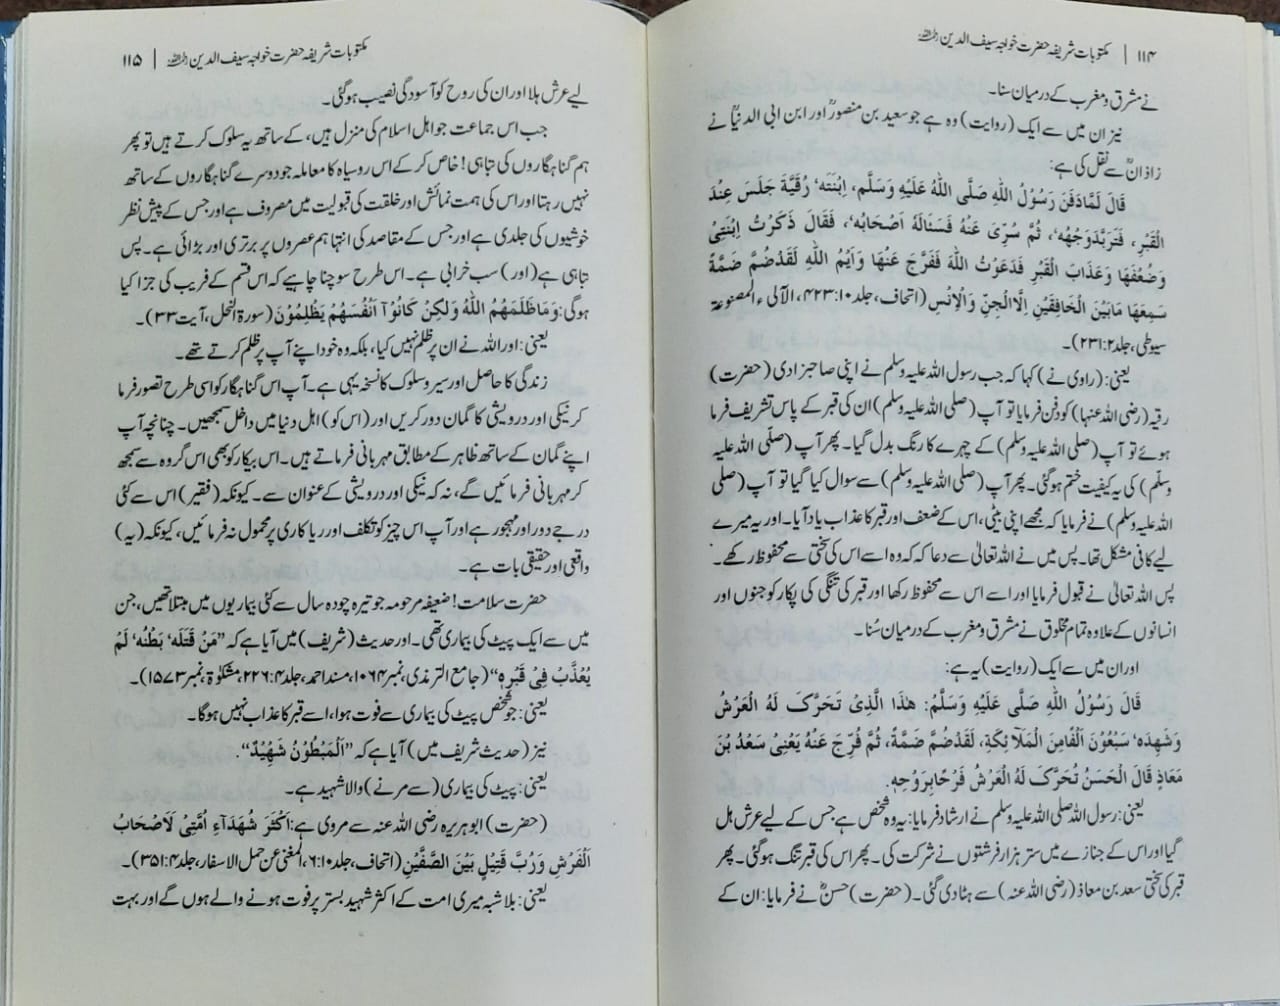 ۱۱۴ | مکتوبات شریفہ حضرت خواجہ سیف الدین رحمۃ اللہ علیہ
نے مشرق ومغرب کے درمیان سنا۔
نیز ان میں سے ایک (روایت) وہ ہے جو سعید بن منصورؒ اور ابن ابی الدنیاؒ نے
زاذانؒ سے نقل کی ہے:
قَالَ لَمَّادَفَنَ رَسُوْلُ اللّٰهِ صَلَّى اللّٰهُ عَلَيْهِ وَسَلَّم، اِبْنَتَه‘ رُقْيَّةَ جَلَسَ عِنْدَ
الْقَبْرِ، فَتَرَبَّدَوَجْهُه‘، ثُمَّ سُرِّىَ عَنْهُ فَسَئَالَهٗ اَصْحَابُه‘، فَقَالَ ذَكَرْتُ اِبْنَتِىْ
وَضُعْفَهَا وَعَذَابَ الْقَبْرِ فَدَعَوْتُ اللّٰهَ فَفَرَّجَ عَنْهَا وَاَيْمُ اللّٰهِ لَقَدْضُمَّ ضَمَّةً
سَمِعَهَا مَابَيْنَ الْخَافِقَيْنِ اِلَّاالْجِنَّ وَالْاِنْسِ (اتحاف، جلد۱۰:۴۲۳، الآلی ء المصنوعۃ
سیوطی، جلد۲:۲۳۱)۔
یعنی: (راوی نے) کہا کہ جب رسول اللہ صلی اللہ علیہ وسلم نے اپنی صاحبزادی (حضرت)
رقیہ (رضی اللہ عنہا) کو دفن فرمایا تو آپ (صلی اللہ علیہ وسلم) ان کی قبر کے پاس تشریف فرما
ہوئے تو آپ (صلی اللہ علیہ وسلم) کے چہرے کا رنگ بدل گیا۔ پھر آپ (صلّی اللہ علیہ
وسلّم) کی یہ کیفیت ختم ہوگئی۔ پھر آپ (صلی اللہ علیہ وسلم) سے سوال کیا گیا تو آپ (صلی
اللہ علیہ وسلم) نے فرمایا کہ مجھے اپنی بیٹی، اس کے ضعف اور قبر کا عذاب یاد آیا۔ اور یہ میرے
لیے کافی مشکل تھا۔ پس میں نے اللہ تعالیٰ سے دعا کہ کہ وہ اسے اس کی سختی سے محفوظ رکھے۔
پس اللہ تعالیٰ نے قبول فرمایا اور اسے اس سے محفوظ رکھا اور قبر کی تنگی کی پکار کو جنوں اور
انسانوں کے علاوہ تمام مخلوق نے مشرق ومغرب کے درمیان سُنا۔
اور ان میں سے ایک (روایت) یہ ہے:
قَالَ رَسُوْلُ اللّٰهِ صَلَّى عَلَيْهِ وَسَلَّمَ: هٰذَا الَّذِىْ تَحَرَّكَ لَهُ الْعَرْشُ
وَشَهِدَه‘ سَبْعُوْنَ اَلْفًامِنَ الْمَلَآئِكَةِ، لَقَدْضُمَّ ضَمَّةً، ثُمَّ فُرِّجَ عَنْهُ يَعْنِىْ سَعْدُ بْنَ
مَعَاذٍ قَالَ الْحَسَنُ تُحَرَّكَ لَهُ الْعَرْشُ فَرْحًابِرَوْحِهٖ.
یعنی: رسول اللہ صلی اللہ علیہ وسلم نے ارشاد فرمایا: یہ وہ شخص ہے جس کے لیے عرش ہل
گیا اور اس کے جنازے میں ستر ہزار فرشتوں نے شرکت کی۔ پھر اس کی قبر تنگ ہوگئی۔ پھر
قبر کی سختی سعد بن معاذ (رضی اللہ عنہ) سے ہٹا دی گئی۔ (حضرت) حسنؓ نے فرمایا: ان کے
مکتوبات شریفہ حضرت خواجہ سیف الدین رحمۃ اللہ علیہ | ۱۱۵
لیے عرش ہلا اور ان کی روح کو آسودگی نصیب ہوگئی۔
جب اس جماعت جو اہل اسلام کی منزل ہیں، کے ساتھ یہ سلوک کرتے ہیں تو پھر
ہم گناہگاروں کی تباہی! خاص کر کے اس روسیاہ کا معاملہ جو دوسرے گناہگاروں کے ساتھ
نہیں رہتا اور اس کی ہمت نمائش اور خلقت کی قبولیت میں مصروف ہے اور جس کے پیش نظر
خوشیوں کی جلدی ہے اور جس کے مقاصد کی انتہا ہم عصروں پر برتری اور بڑائی ہے۔ پس
تباہی ہے (اور) سب خرابی ہے۔ اس طرح سوچنا چاہیے کہ اس قسم کے فریب کی جزا کیا
ہوگی: وَمَاظَلَمَهُمُ اللّٰهُ وَلٰكِنْ كَانُوْٓا اَنْفُسَهُمْ يَظْلِمُوْنَ (سورۃ النحل، آیت ۳۳)۔
یعنی: اور اللہ نے ان پر ظلم نہیں کیا، بلکہ وہ خود اپنے آپ پر ظلم کرتے تھے۔
زندگی کا حاصل اور سیر وسلوک کا نسخہ یہی ہے۔ آپ اس گناہگار کو اسی طرح تصور فرما
کر نیکی اور درویشی کا گمان دور کریں اور (اس کو) اہل دنیا میں داخل سمجھیں۔ چنانچہ آپ
اپنے گمان کے ساتھ ظاہر کے مطابق مہربانی فرماتے ہیں۔ اس بیکار کو بھی اس گروہ سے سمجھ
کر مہربانی فرمائیں گے، نہ کہ نیکی اور درویشی کے عنوان سے۔ کیونکہ (فقیر) اس سے کئی
درجے دور اور مہجور ہے اور آپ اس چیز کو تکلف اور ریاکاری پر محمول نہ فرمائیں، کیونکہ (یہ)
واقعی اور حقیقی بات ہے۔
حضرت سلامت! ضعیفہ مرحومہ جو تیرہ چودہ سال سے کئی بیماریوں میں مبتلا تھیں، جن
میں سے ایک پیٹ کی بیماری تھی۔ اور حدیث (شریف) میں آیا ہے کہ ”مَنْ قَتَلَه‘ بَطْنُه‘ لَمْ
يُعْذَّبْ فِىْ قَبْرِهٖ“ (جامع الترمذی، نمبر ۱۰۶۴، مسند احمد، جلد۴:۲۲۶، مشکوٰۃ، نمبر ۱۵۷۳)۔
یعنی: جو شخص پیٹ کی بیماری سے فوت ہوا، اسے قبر کا عذاب نہیں ہوگا۔
نیز (حدیث شریف میں) آیا ہے کہ ”اَلْمَبْطُوْنُ شَهِيْدٌ“۔
یعنی: پیٹ کی بیماری (سے مرنے) والا شہید ہے۔
(حضرت) ابوہریرہ رضی اللہ عنہ سے مروی ہے: اَكْثَرَ شُهَدَآءِ اُمَّتِىْ لَاَصْحَابُ
الْفَرْشِ وَرُبَّ قَتِيْلٍ بَيْنَ الصَّفَّيْنِ (اتحاف، جلد۱۰:۶، المغنی عن حمل الاسفار، جلد۴:۳۵۱)۔
یعنی: بلاشبہ میری امت کے اکثر شہید بستر پر فوت ہونے والے ہوں گے اور بہت